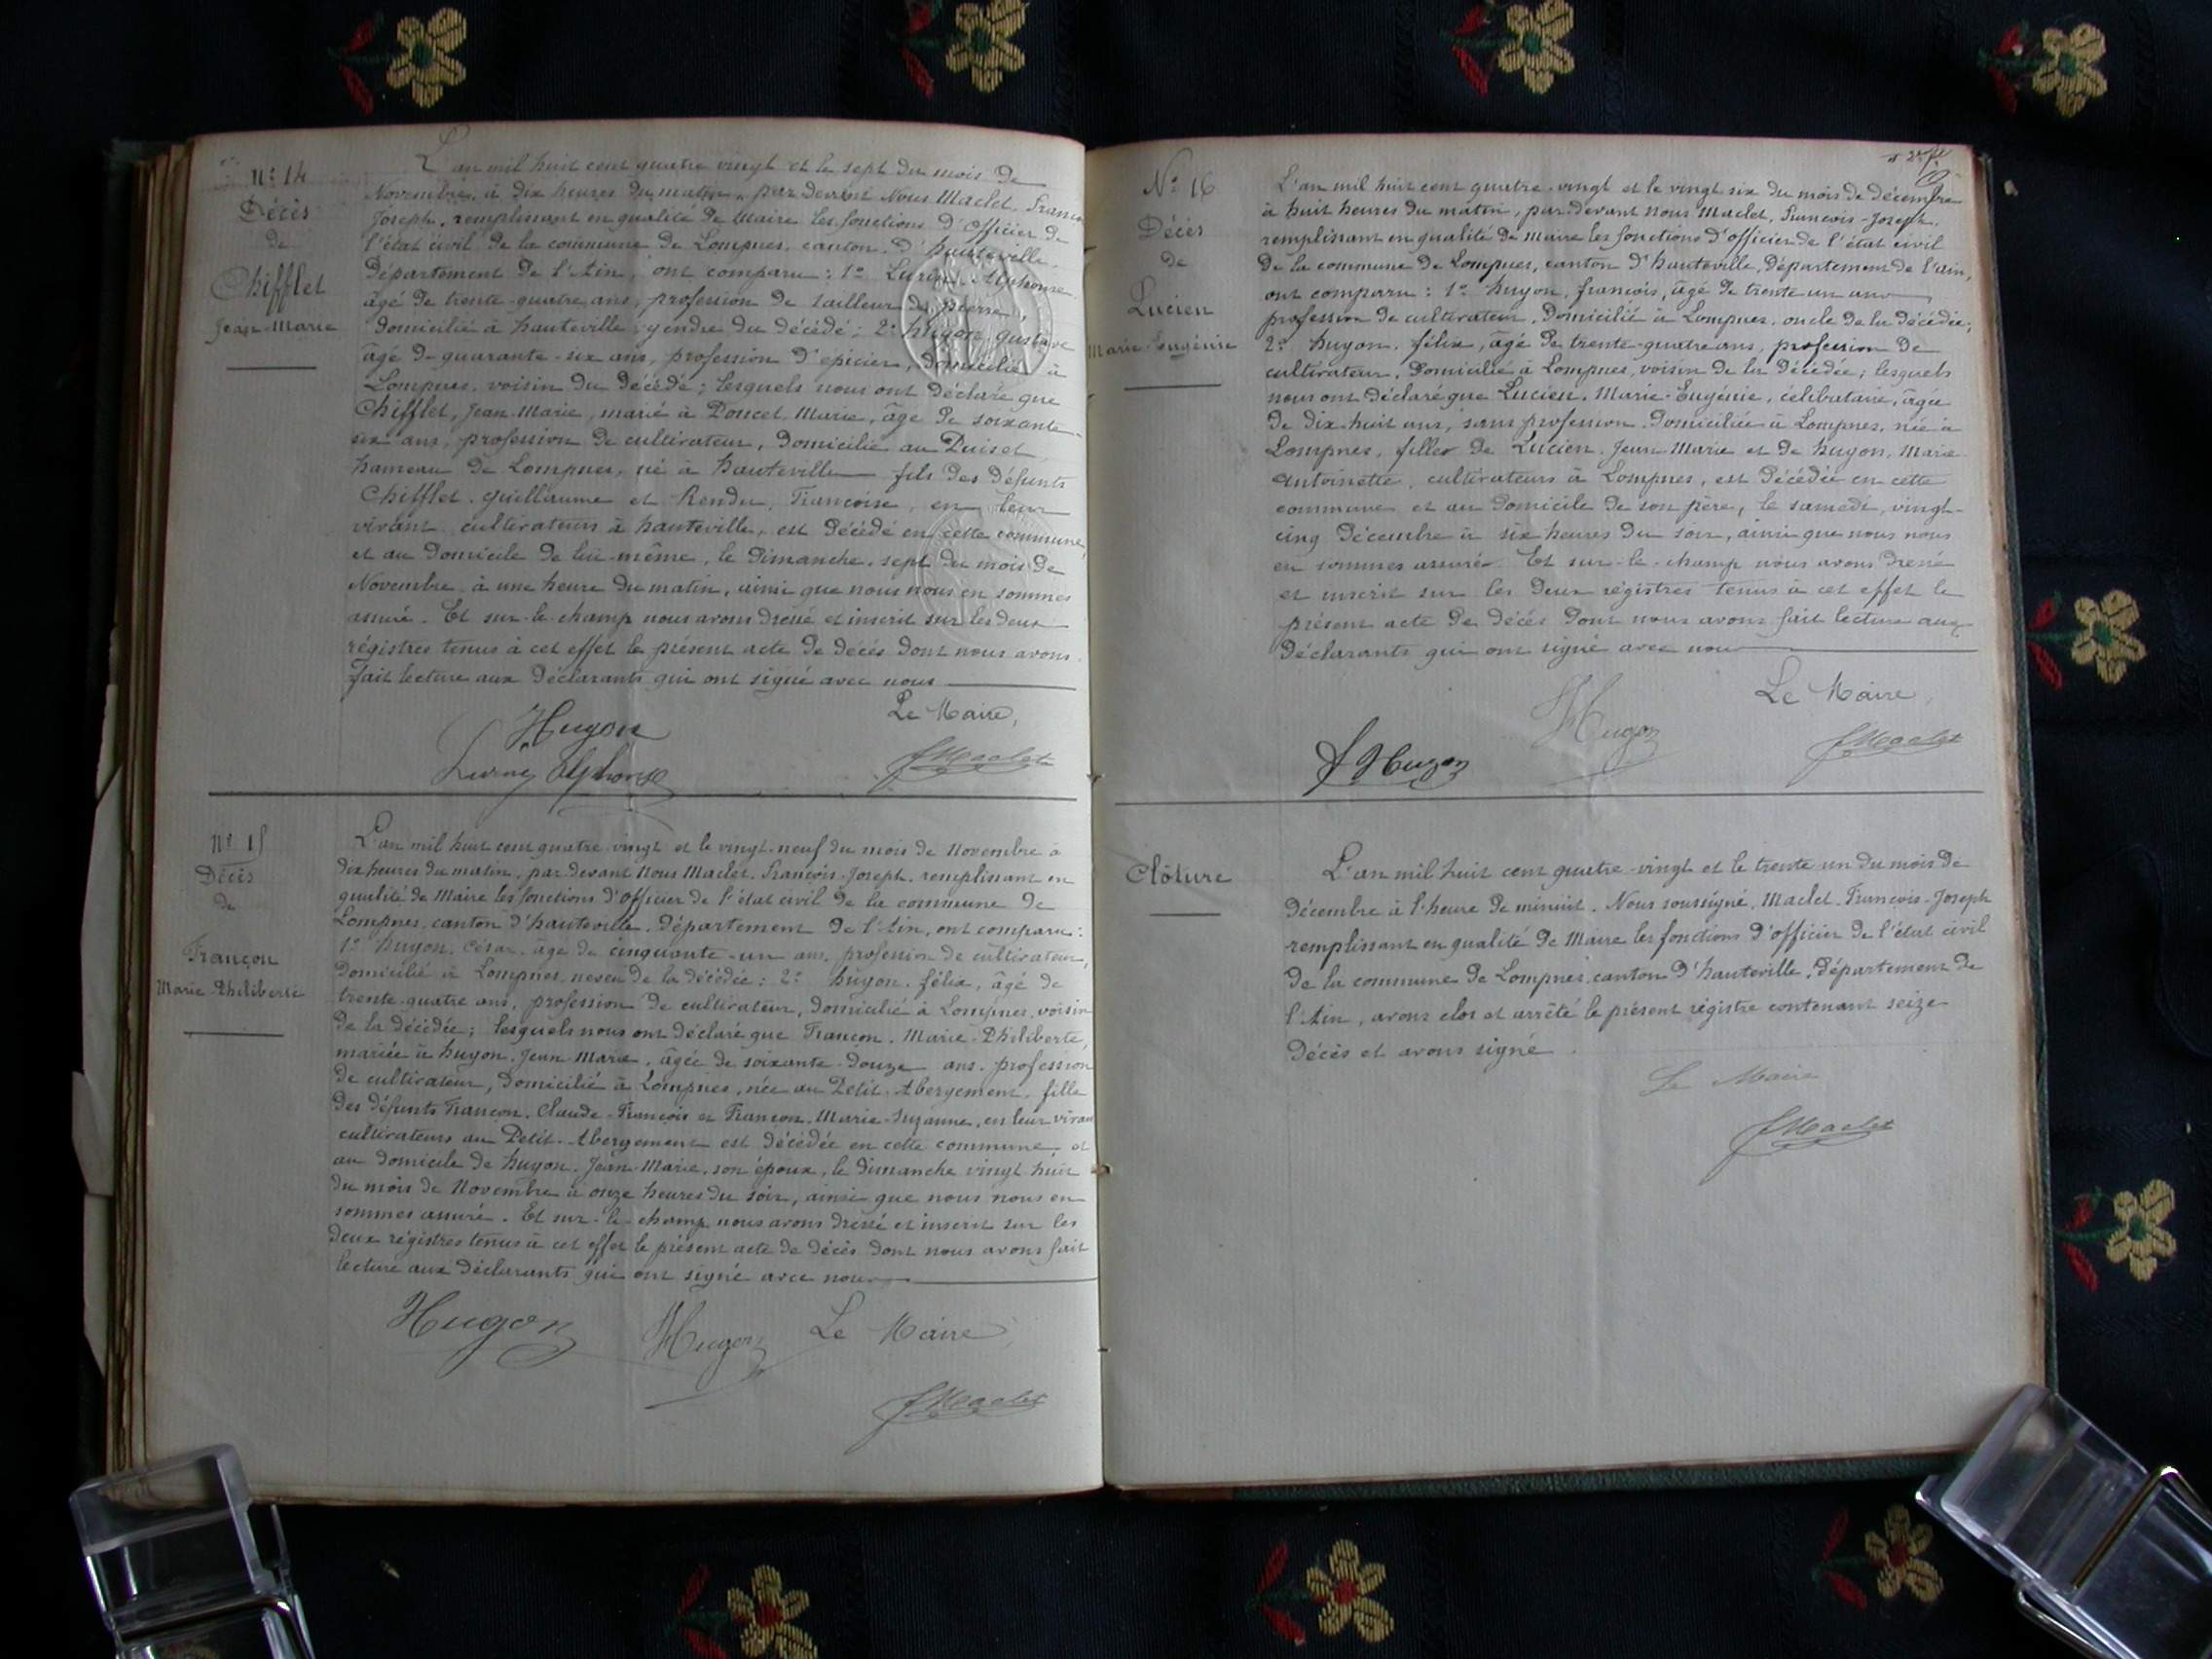 N° 14
Décès
de
Chifflet
Jean-Marie
L'an mil huit cent quatre vingt et le sept du mois de
Novembre, à dix heures du matin, par devant Nous Maclet, François
Joseph, remplissant en qualité de Maire les fonctions d'officier de
l'état civil de la commune de Lompnes, canton d'hauteville,
département de l'Ain, ont comparu : 1° Alphonse
âgé de trente-quatre ans, profession de tailleur de pierre,
domicilié à hauteville, gendre du décédé ; 2° hugon gustave
âgé de quarante-six ans, profession d'épicier, domicilié à
Lompnes, voisin du décédé ; lesquels nous ont déclaré que
Chifflet, Jean Marie, marié à Doucet Marie, âgé de soixante
six ans, profession de cultivateur, domicilié au
hameau de Lompnes, né à hauteville fils des défunts
Chifflet, guillaume et Rendu, Françoise, en leur
vivant cultivateurs à hauteville, est décédé en cette commune
et au domicile de lui-même, le dimanche, sept du mois de
Novembre à une heure du matin, ainsi que nous nous en sommes
assuré. Et sur-le-champ nous avons dressé et inscrit sur les deux
régistres tenus à cet effet le présent acte de décès dont nous avons
fait lecture aux déclarants qui ont signé avec nous
Hugon
Le Maire,
Alphonse
fMaclet
N° 15
Décès
de
Françon
Marie Philiberte
L'an mil huit cent quatre-vingt et le vingt-neuf du mois de Novembre à
dix heures du matin, par devant Nous Maclet, François-Joseph, remplissant en
qualité de Maire les fonctions d'officier de l'état civil de la commune de
Lompnes, canton d'hauteville, département de l'Ain, ont comparu :
1° hugon, César, âgé de cinquante-un ans, profession de cultivateur,
domicilié à Lompnes, neveu de la décédée ; 2° hugon, félix, âgé de
trente-quatre ans, profession de cultivateur, domicilié à Lompnes, voisin
de la décédée ; lesquels nous ont déclaré que Françon, Marie-Philiberte,
mariée à hugon, Jean-Marie, âgée de soixante-douze ans, profession
de cultivateur, domicilié à Lompnes, née au Petit-Abergement, fille
des défunts Françon, Claude-François et Françon, Marie-Suzanne, en leur vivant
cultivateurs au Petit-Abergement est décédée en cette commune et
au domicile de hugon, Jean-Marie, son époux, le dimanche vingt huit
du mois de Novembre à onze heures du soir, ainsi que nous nous en
sommes assuré. Et sur-le-champ nous avons dressé et inscrit sur les
deux régistres tenus à cet effet le présent acte de décès dont nous avons fait
lecture aux déclarants qui ont signé avec nous
Hugon
Hugon
Le Maire
fMaclet
N° 16
Décès
de
Lucien
Marie-Eugénie
L'an mil huit cent quatre-vingt et le vingt six du mois de décembre
à huit heures du matin, par-devant nous Maclet, François-Joseph,
remplissant en qualité de Maire les fonctions d'officier de l'état civil
de la commune de Lompnes, canton d'hauteville, département de l'ain,
ont comparu : 1° hugon, françois, âgé de trente un ans
profession de cultivateur, domicilié à Lompnes, oncle de la décédée ;
2° hugon, félix, âgé de trente-quatre ans, profession de
cultivateur, domicilié à Lompnes, voisin de la décédée ; lesquels
nous ont déclaré que Lucien, Marie-Eugénie, célibataire, âgée
de dix-huit ans, sans profession, domiciliée à Lompnes, née à
Lompnes, fille de Lucien, Jean-Marie et de hugon, Marie
Antoinette, cultivateurs à Lompnes, est décédée en cette
commune et au domicile de son père, le samedi, vingt-
cinq décembre à six heures du soir, ainsi que nous nous
en sommes assuré. Et sur-le-champ nous avons dressé
et inscrit sur les deux régistres tenus à cet effet le
présent acte de décès dont nous avons fait lecture aux
déclarants qui ont signé avec nous
Le Maire,
f Hugon
Hugon
fMaclet
Clôture
L'an mil huit cent quatre-vingt et le trente-un du mois de
décembre à l'heure de minuit. Nous soussigné, Maclet-François-Joseph
remplissant en qualité de Maire les fonctions d'officier de l'état civil
de la commune de Lompnes, canton d'hauteville, département de
l'Ain, avons clos et arrêté le présent régistre contenant seize
décès et avons signé.
Le Maire
fMaclet